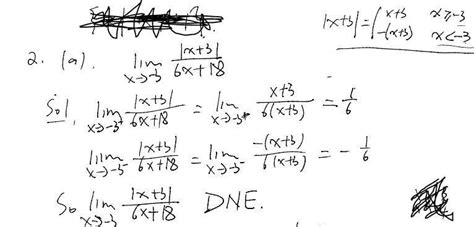 |x+3| = { x+3 x ≥ -3
-(x+3) x < -3
2. (a). lim x→-3 |x+3| / 6x+18
Sol lim x→-3⁺ |x+3| / 6x+18 = lim x→-3⁺ x+3 / 6(x+3) = 1/6
lim x→-3⁻ |x+3| / 6x+18 = lim x→-3⁻ -(x+3) / 6(x+3) = - 1/6
So lim x→-3 |x+3| / 6x+18 DNE.